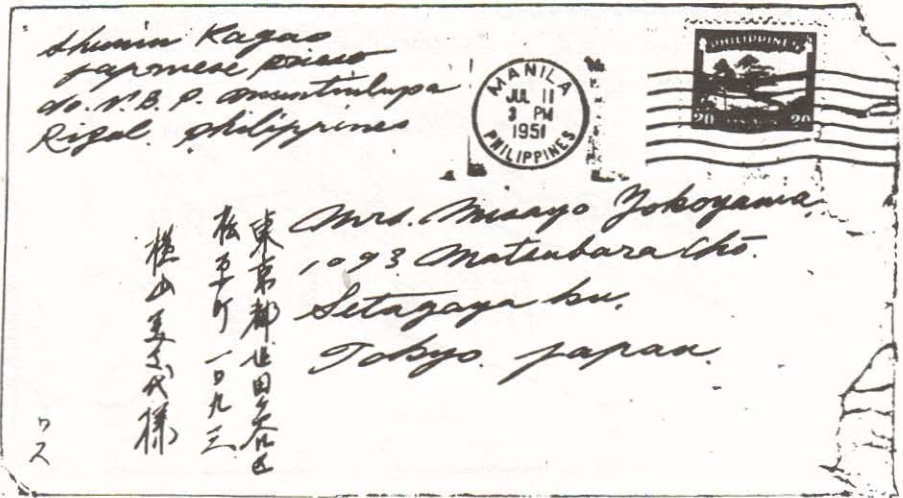 Shunin Kagao
Japanese Priest
c/o. N. B. P. Muntinlupa
Rizal. Philippines
MANILA
JUL 11
3 PM
1951
PHILIPPINES
PHILIPPINES
20 20
Mrs. Misayo Yokoyama
1093 Matsubara Chō.
Setagaya ku.
Tokyo. Japan.
東京都世田谷区
松原町一〇九三
横山美代様